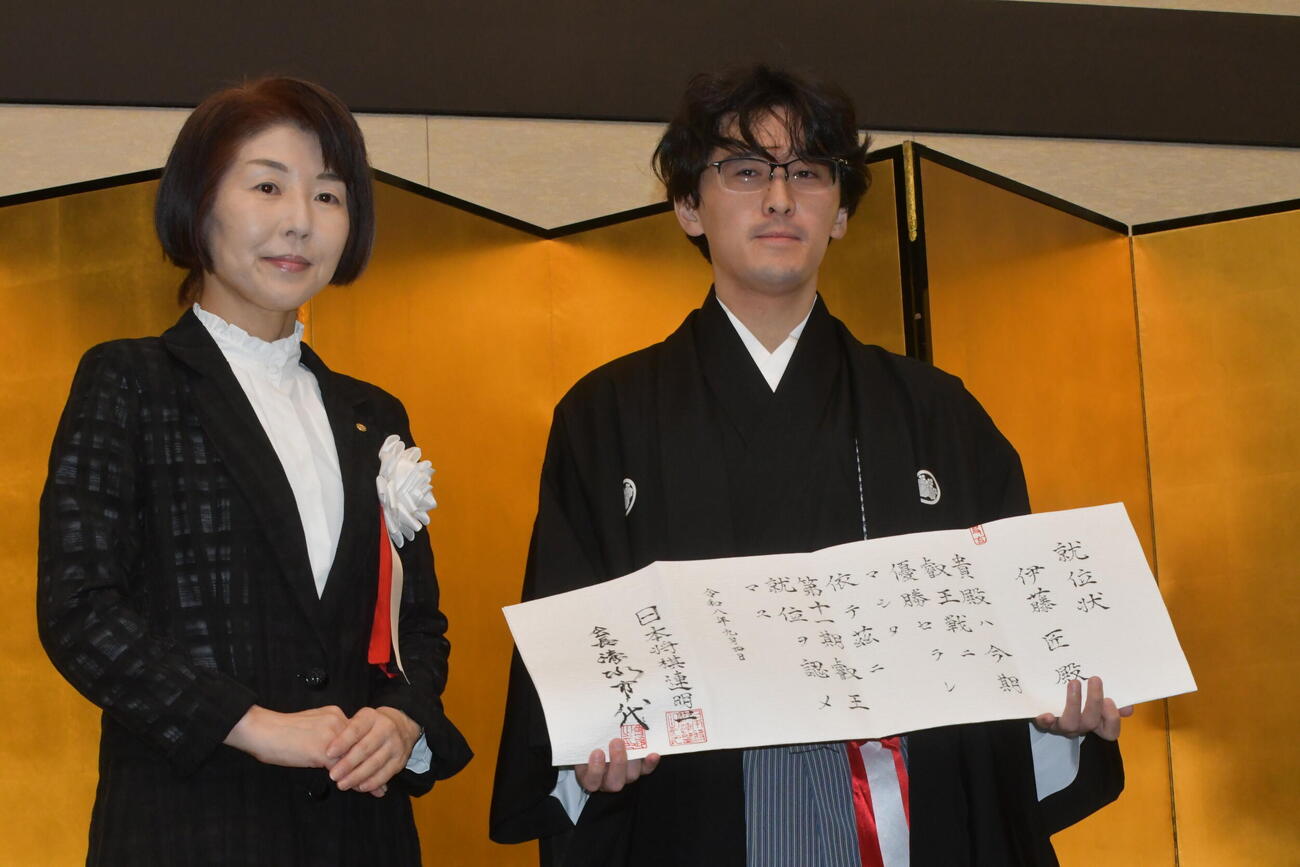 就位状
伊藤 匠殿
貴殿ハ今期
叡王戦ニ於テ
優勝セラレ
マシタ
依テ茲ニ
第十一期叡王
就位ヲ認メ
マス
令和八年九月四日
日本将棋連盟
清水市代